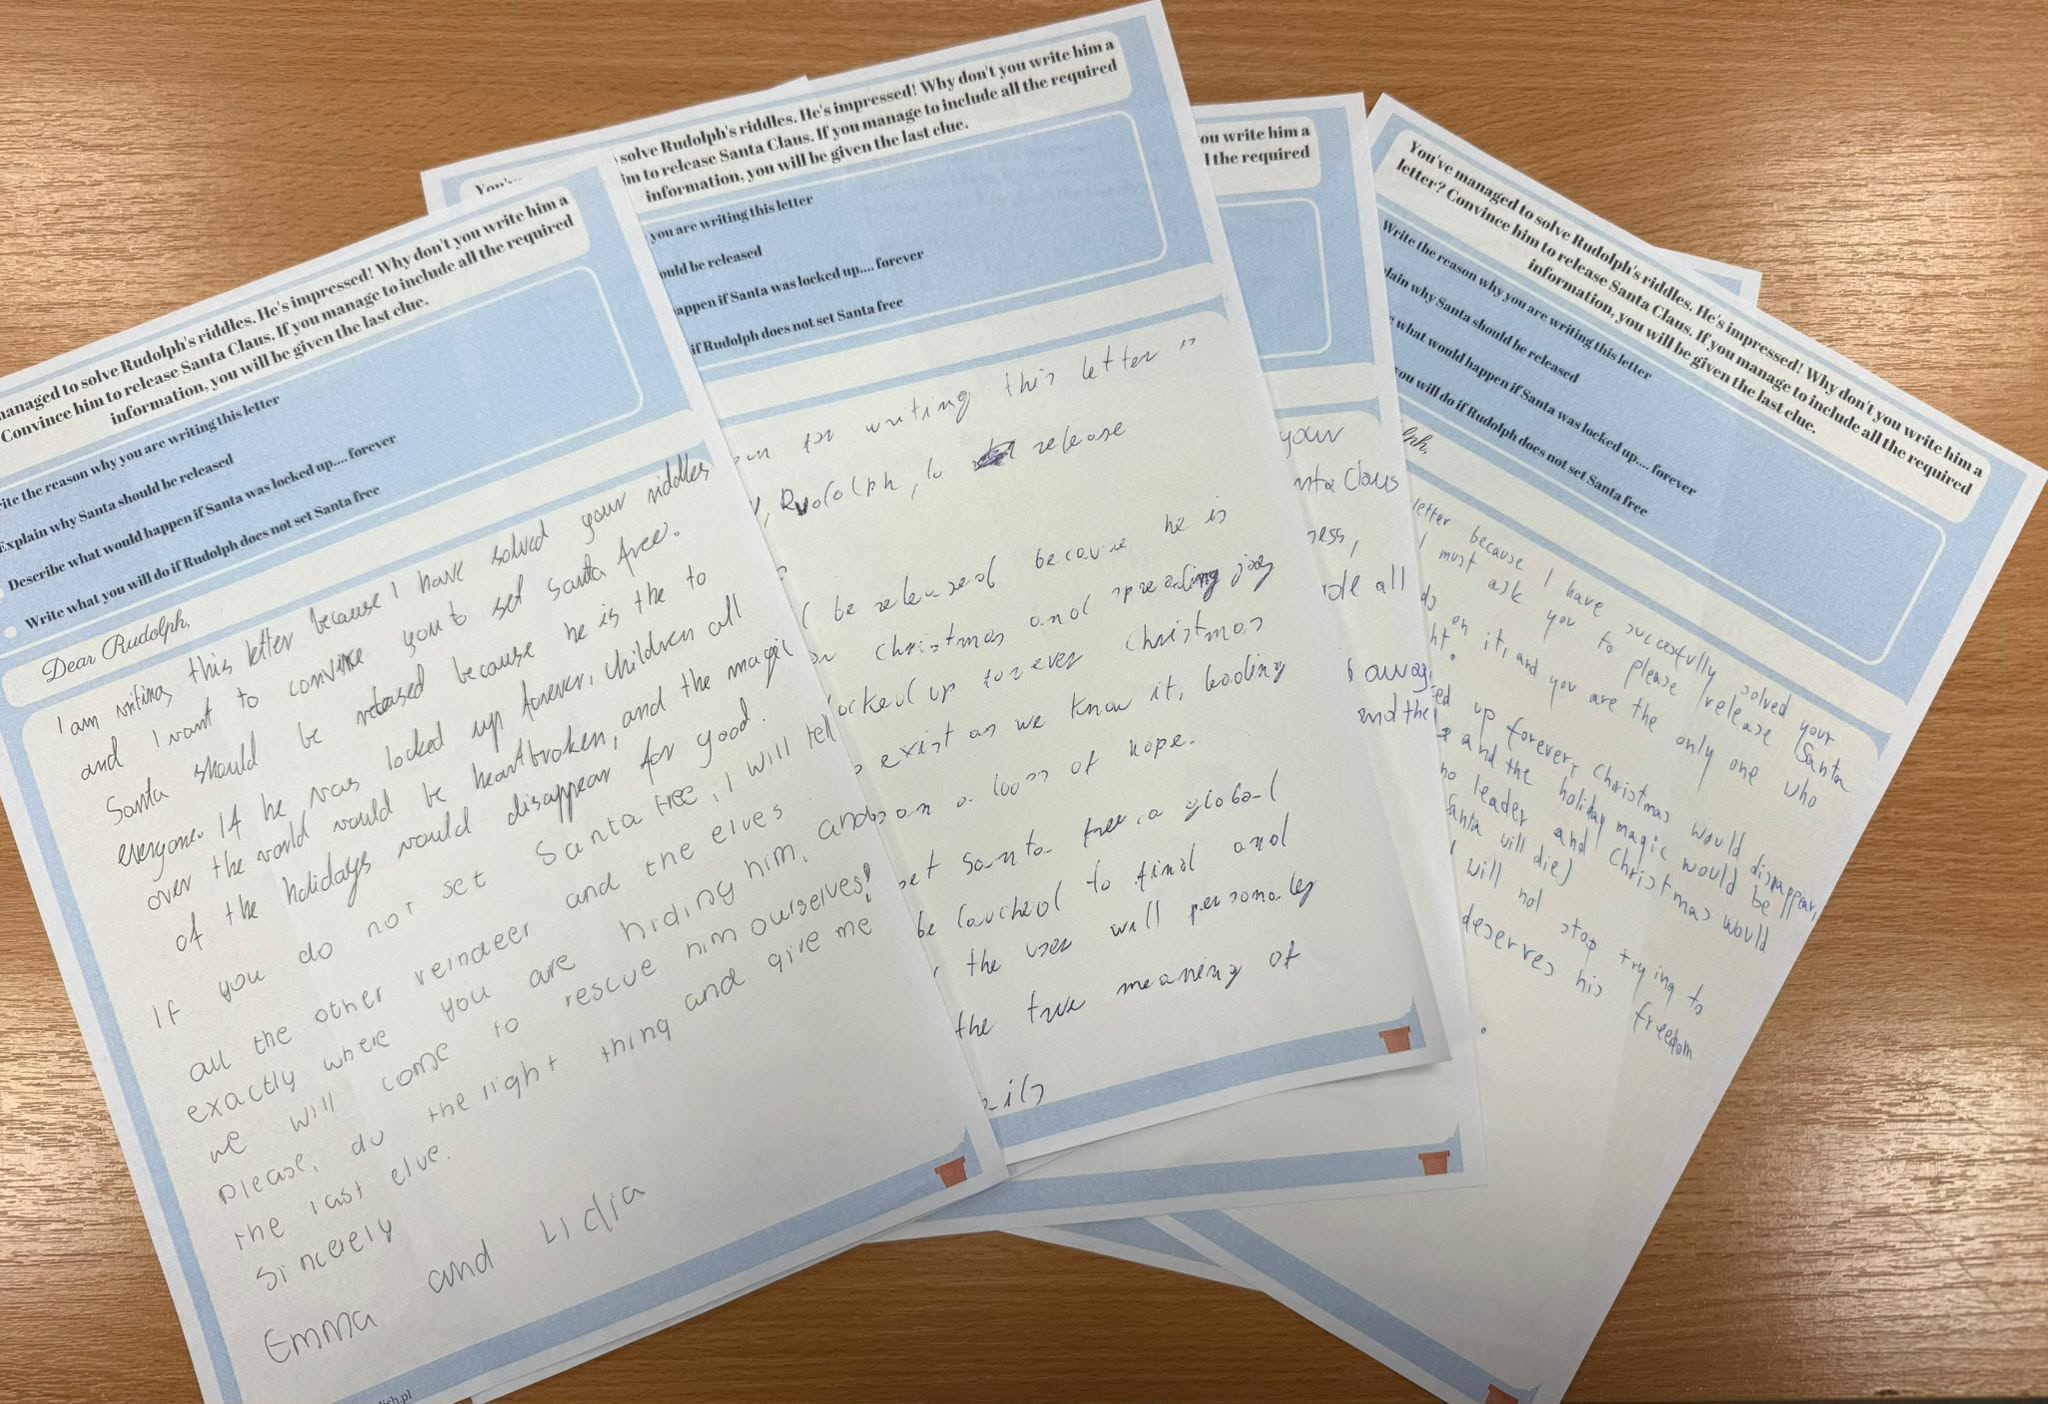 managed to solve Rudolph's riddles. He's impressed! Why don't you write him a
Convince him to release Santa Claus. If you manage to include all the required
information, you will be given the last clue.
ite the reason why you are writing this letter
Explain why Santa should be released
Describe what would happen if Santa was locked up.... forever
Write what you will do if Rudolph does not set Santa free
Dear Rudolph,
I am writing this letter because I have solved your riddles
and I want to convince you to set Santa free.
Santa should be released because he is the to
everyone. If he was locked up forever, children all
over the world would be heartbroken, and the magic
of the holidays would disappear for good.
If you do not set Santa free, I will tell
all the other reindeer and the elves
exactly where you are hiding him, and
we will come to rescue him ourselves!
please, do the right thing and give me
the last clue.
Sincerely
Emma and Lidia
lish.pl
You'v
solve Rudolph's riddles. He's impressed! Why don't you write him a
im to release Santa Claus. If you manage to include all the required
information, you will be given the last clue.
you are writing this letter
ould be released
appen if Santa was locked up.... forever
if Rudolph does not set Santa free
for writing this letter is
, Rudolph, to release
be released because he is
christmas and spreading joy
ocked up forever christmas
exist as we know it, leading
a loss of hope.
set Santa free a global
be lauched to find and
the user will personaly
the true meaning of
ou write him a
l the required
your
nta Claus
ress,
all
away
and the
You've managed to solve Rudolph's riddles. He's impressed! Why don't you write him a
letter? Convince him to release Santa Claus. If you manage to include all the required
information, you will be given the last clue.
Write the reason why you are writing this letter
lain why Santa should be released
what would happen if Santa was locked up.... forever
you will do if Rudolph does not set Santa free
lph,
letter because I have successfully solved your
I must ask you to please release Santa
on it, and you are the only one who
ht.
ed up forever, Christmas would disappear,
and the holiday magic would be
no leader and Christmas would
Santa will die)
will not stop trying to
deserves his freedom